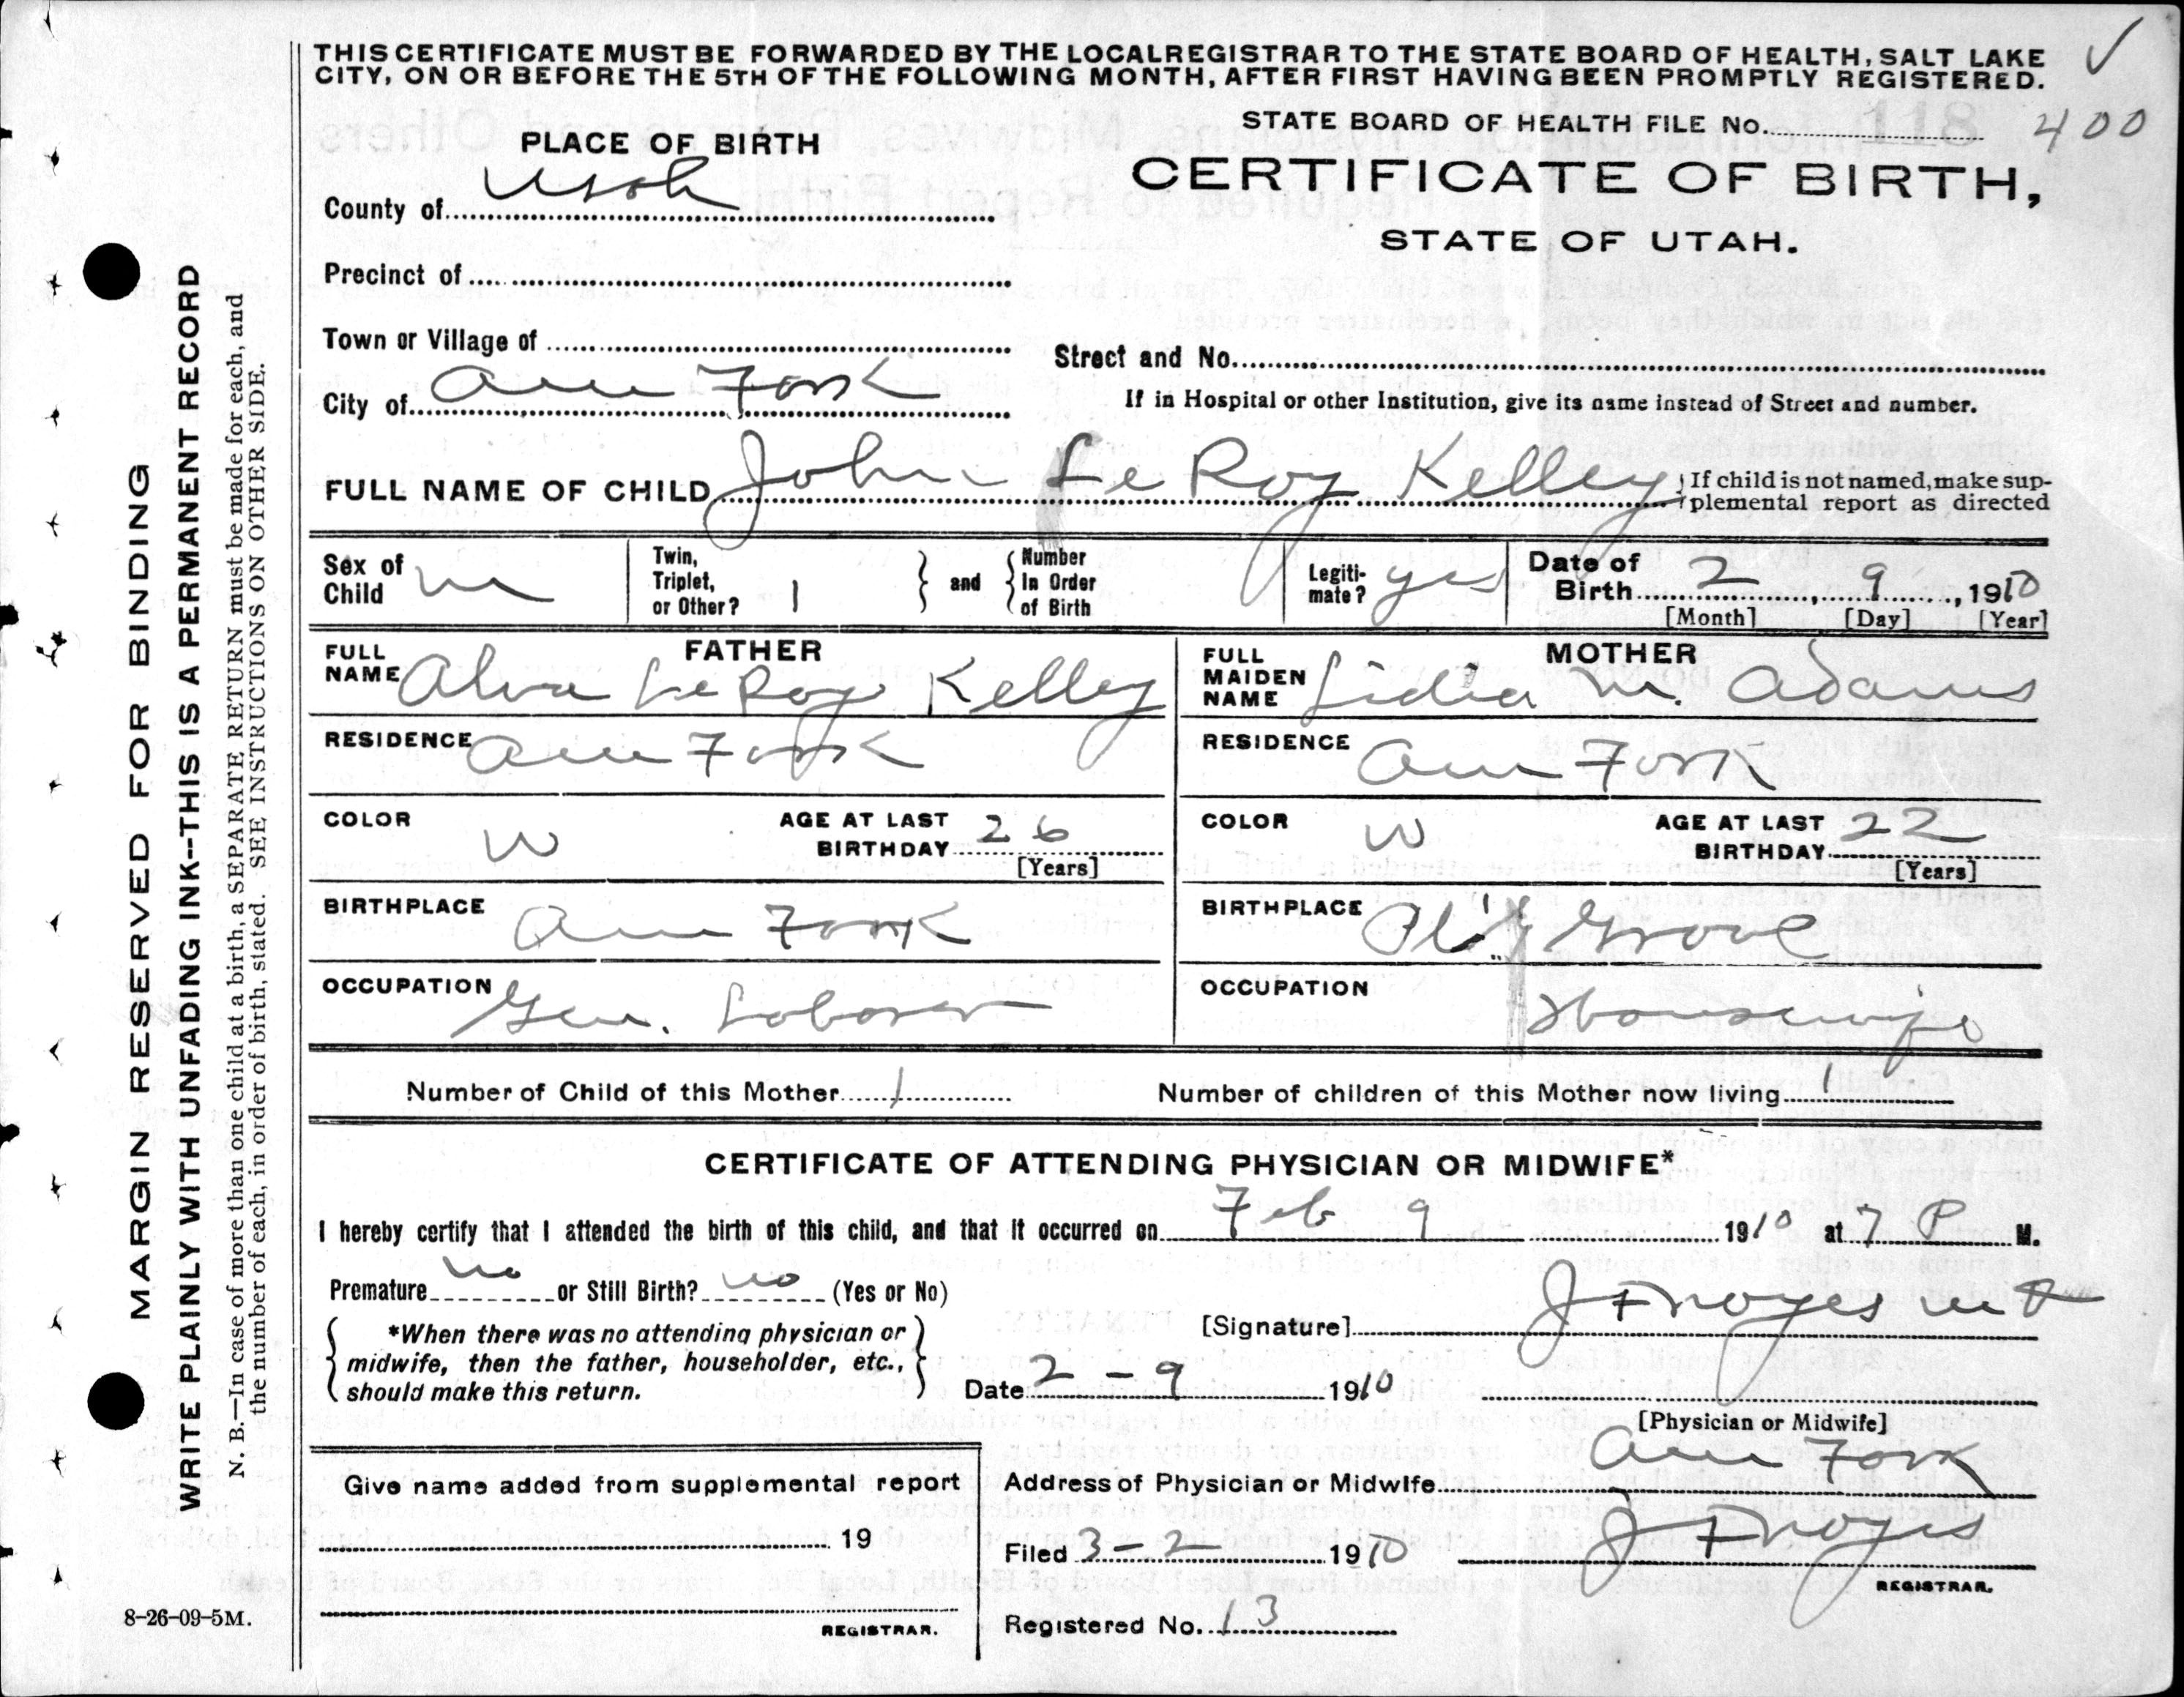 THIS CERTIFICATE MUST BE FORWARDED BY THE LOCAL REGISTRAR TO THE STATE BOARD OF HEALTH, SALT LAKE
CITY, ON OR BEFORE THE 5TH OF THE FOLLOWING MONTH, AFTER FIRST HAVING BEEN PROMPTLY REGISTERED.
STATE BOARD OF HEALTH FILE No. 118 400
PLACE OF BIRTH
CERTIFICATE OF BIRTH,
STATE OF UTAH.
County of Utah
Precinct of
Town or Village of
Street and No.
City of Am Fork
If in Hospital or other Institution, give its name instead of Street and number.
FULL NAME OF CHILD John LeRoy Kelley
If child is not named, make sup-
plemental report as directed
Sex of Child M
Twin, Triplet, or Other? 1
and Number In Order of Birth
Legiti-mate? yes
Date of Birth 2, 9, 1910
[Month] [Day] [Year]
FATHER
FULL NAME Alva LeRoy Kelley
MOTHER
FULL MAIDEN NAME Lidia M. Adams
RESIDENCE Am Fork
RESIDENCE Am Fork
COLOR W
AGE AT LAST BIRTHDAY 26
[Years]
COLOR W
AGE AT LAST BIRTHDAY 22
[Years]
BIRTHPLACE Am Fork
BIRTHPLACE Pl Grove
OCCUPATION Gen. Laborer
OCCUPATION Housewife
Number of Child of this Mother 1
Number of children of this Mother now living 1
CERTIFICATE OF ATTENDING PHYSICIAN OR MIDWIFE*
I hereby certify that I attended the birth of this child, and that it occurred on Feb 9 1910 at 7 P M.
Premature no or Still Birth? no (Yes or No)
*When there was no attending physician or
midwife, then the father, householder, etc.,
should make this return.
[Signature] J F Noyes MD
Date 2-9 1910
[Physician or Midwife]
Give name added from supplemental report
19
REGISTRAR.
Address of Physician or Midwife Am Fork
Filed 3-2 1910
J F Noyes
REGISTRAR.
Registered No. 13
MARGIN RESERVED FOR BINDING
WRITE PLAINLY WITH UNFADING INK--THIS IS A PERMANENT RECORD
N. B.—In case of more than one child at a birth, a SEPARATE RETURN must be made for each, and
the number of each, in order of birth, stated. SEE INSTRUCTIONS ON OTHER SIDE.
8-26-09-5M.